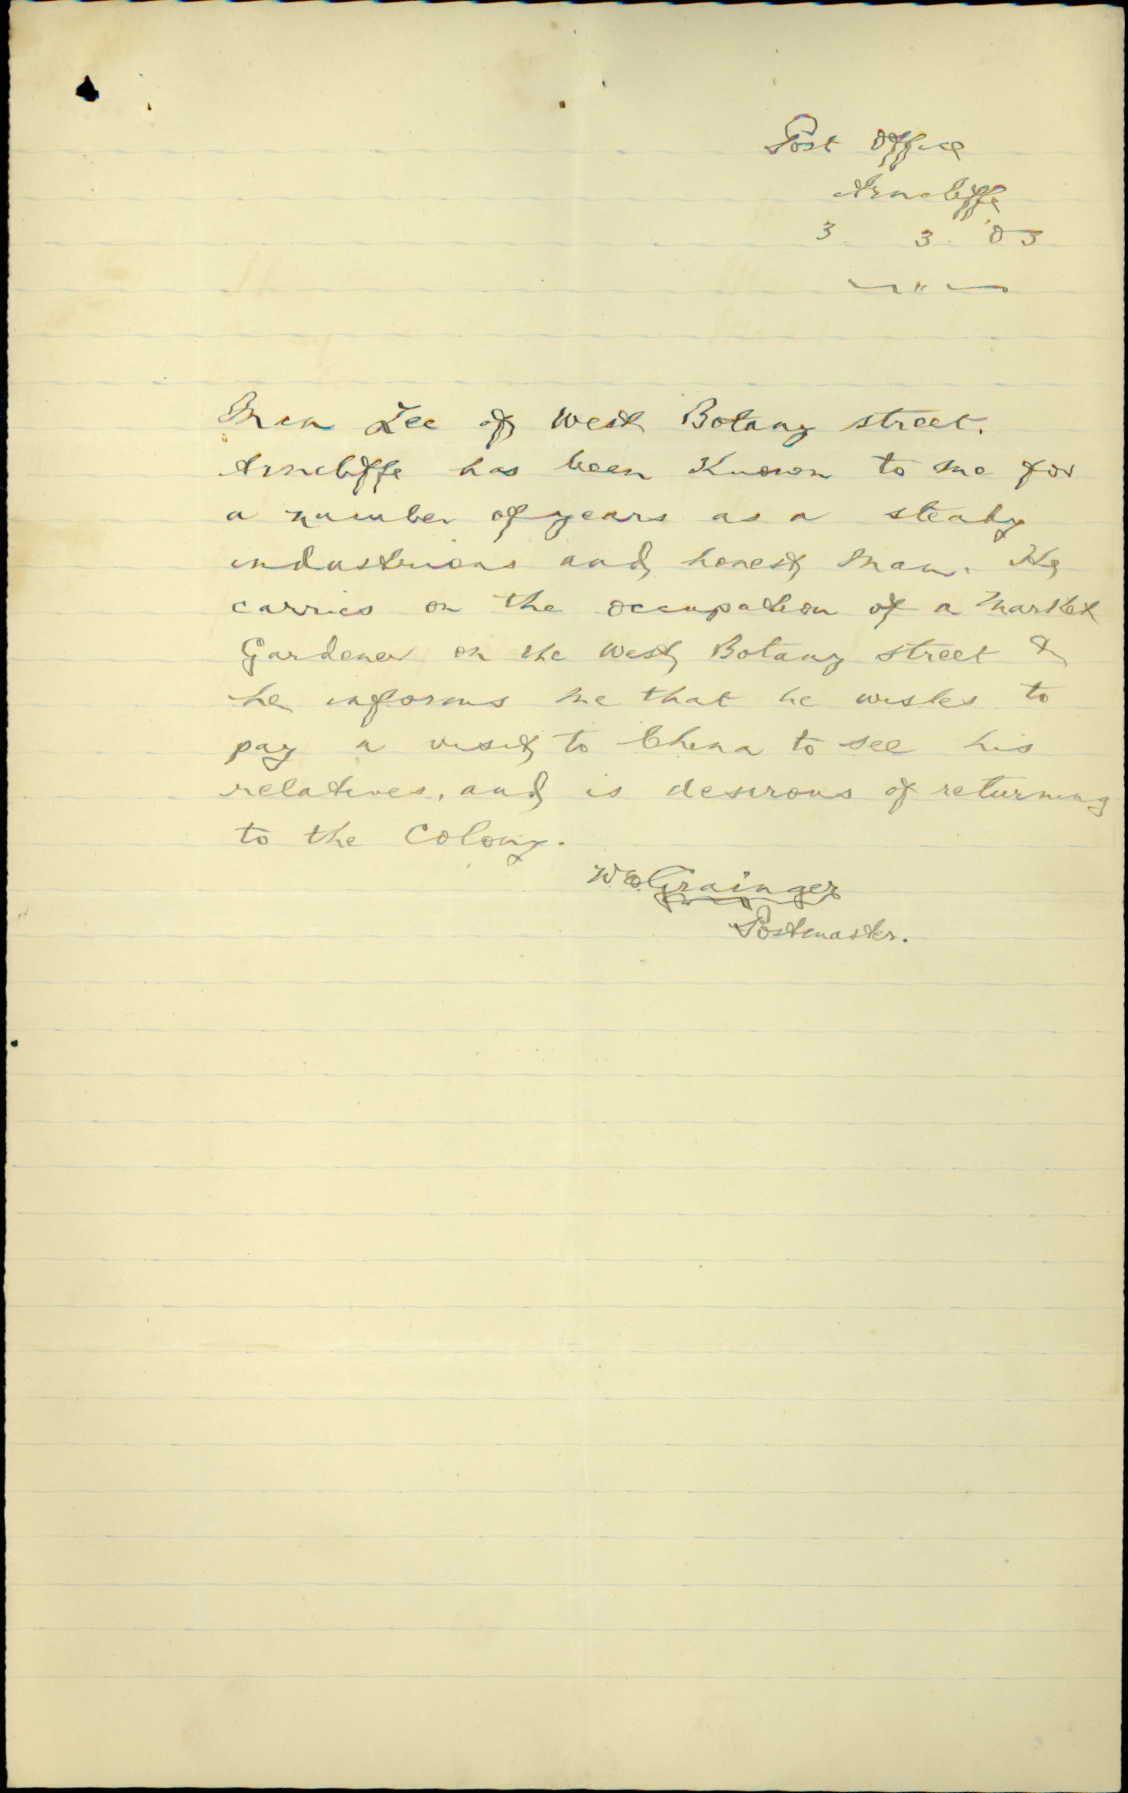 Post Office
Arncliffe
3. 3. '03
Lee of West Botany street.
Arncliffe has been Known to me for
a number of years as a steady
industrious and honest man. He
carries on the occupation of a Market
Gardener on the West Botany street &
he informs me that he wishes to
pay a visit to China to see his
relatives, and is desirous of returning
to the Colony.
Grainger
Postmaster.